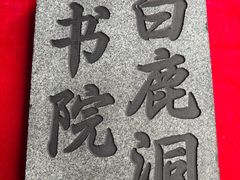 白鹿洞
书院